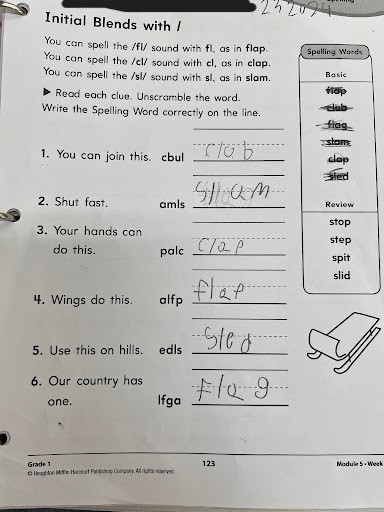 Initial Blends with l
You can spell the /fl/ sound with fl, as in flap.
You can spell the /cl/ sound with cl, as in clap.
You can spell the /sl/ sound with sl, as in slam.
▶ Read each clue. Unscramble the word.
Write the Spelling Word correctly on the line.
1. You can join this. cbul club
2. Shut fast. amls slam
3. Your hands can
do this. palc clap
4. Wings do this. alfp flap
5. Use this on hills. edls Sled
6. Our country has
one. lfga Flag
Spelling Words
Basic
flap
club
flag
slam
clap
sled
Review
stop
step
spit
slid
Grade 1
123
Module 5 • Week
© Houghton Mifflin Harcourt Publishing Company. All rights reserved.